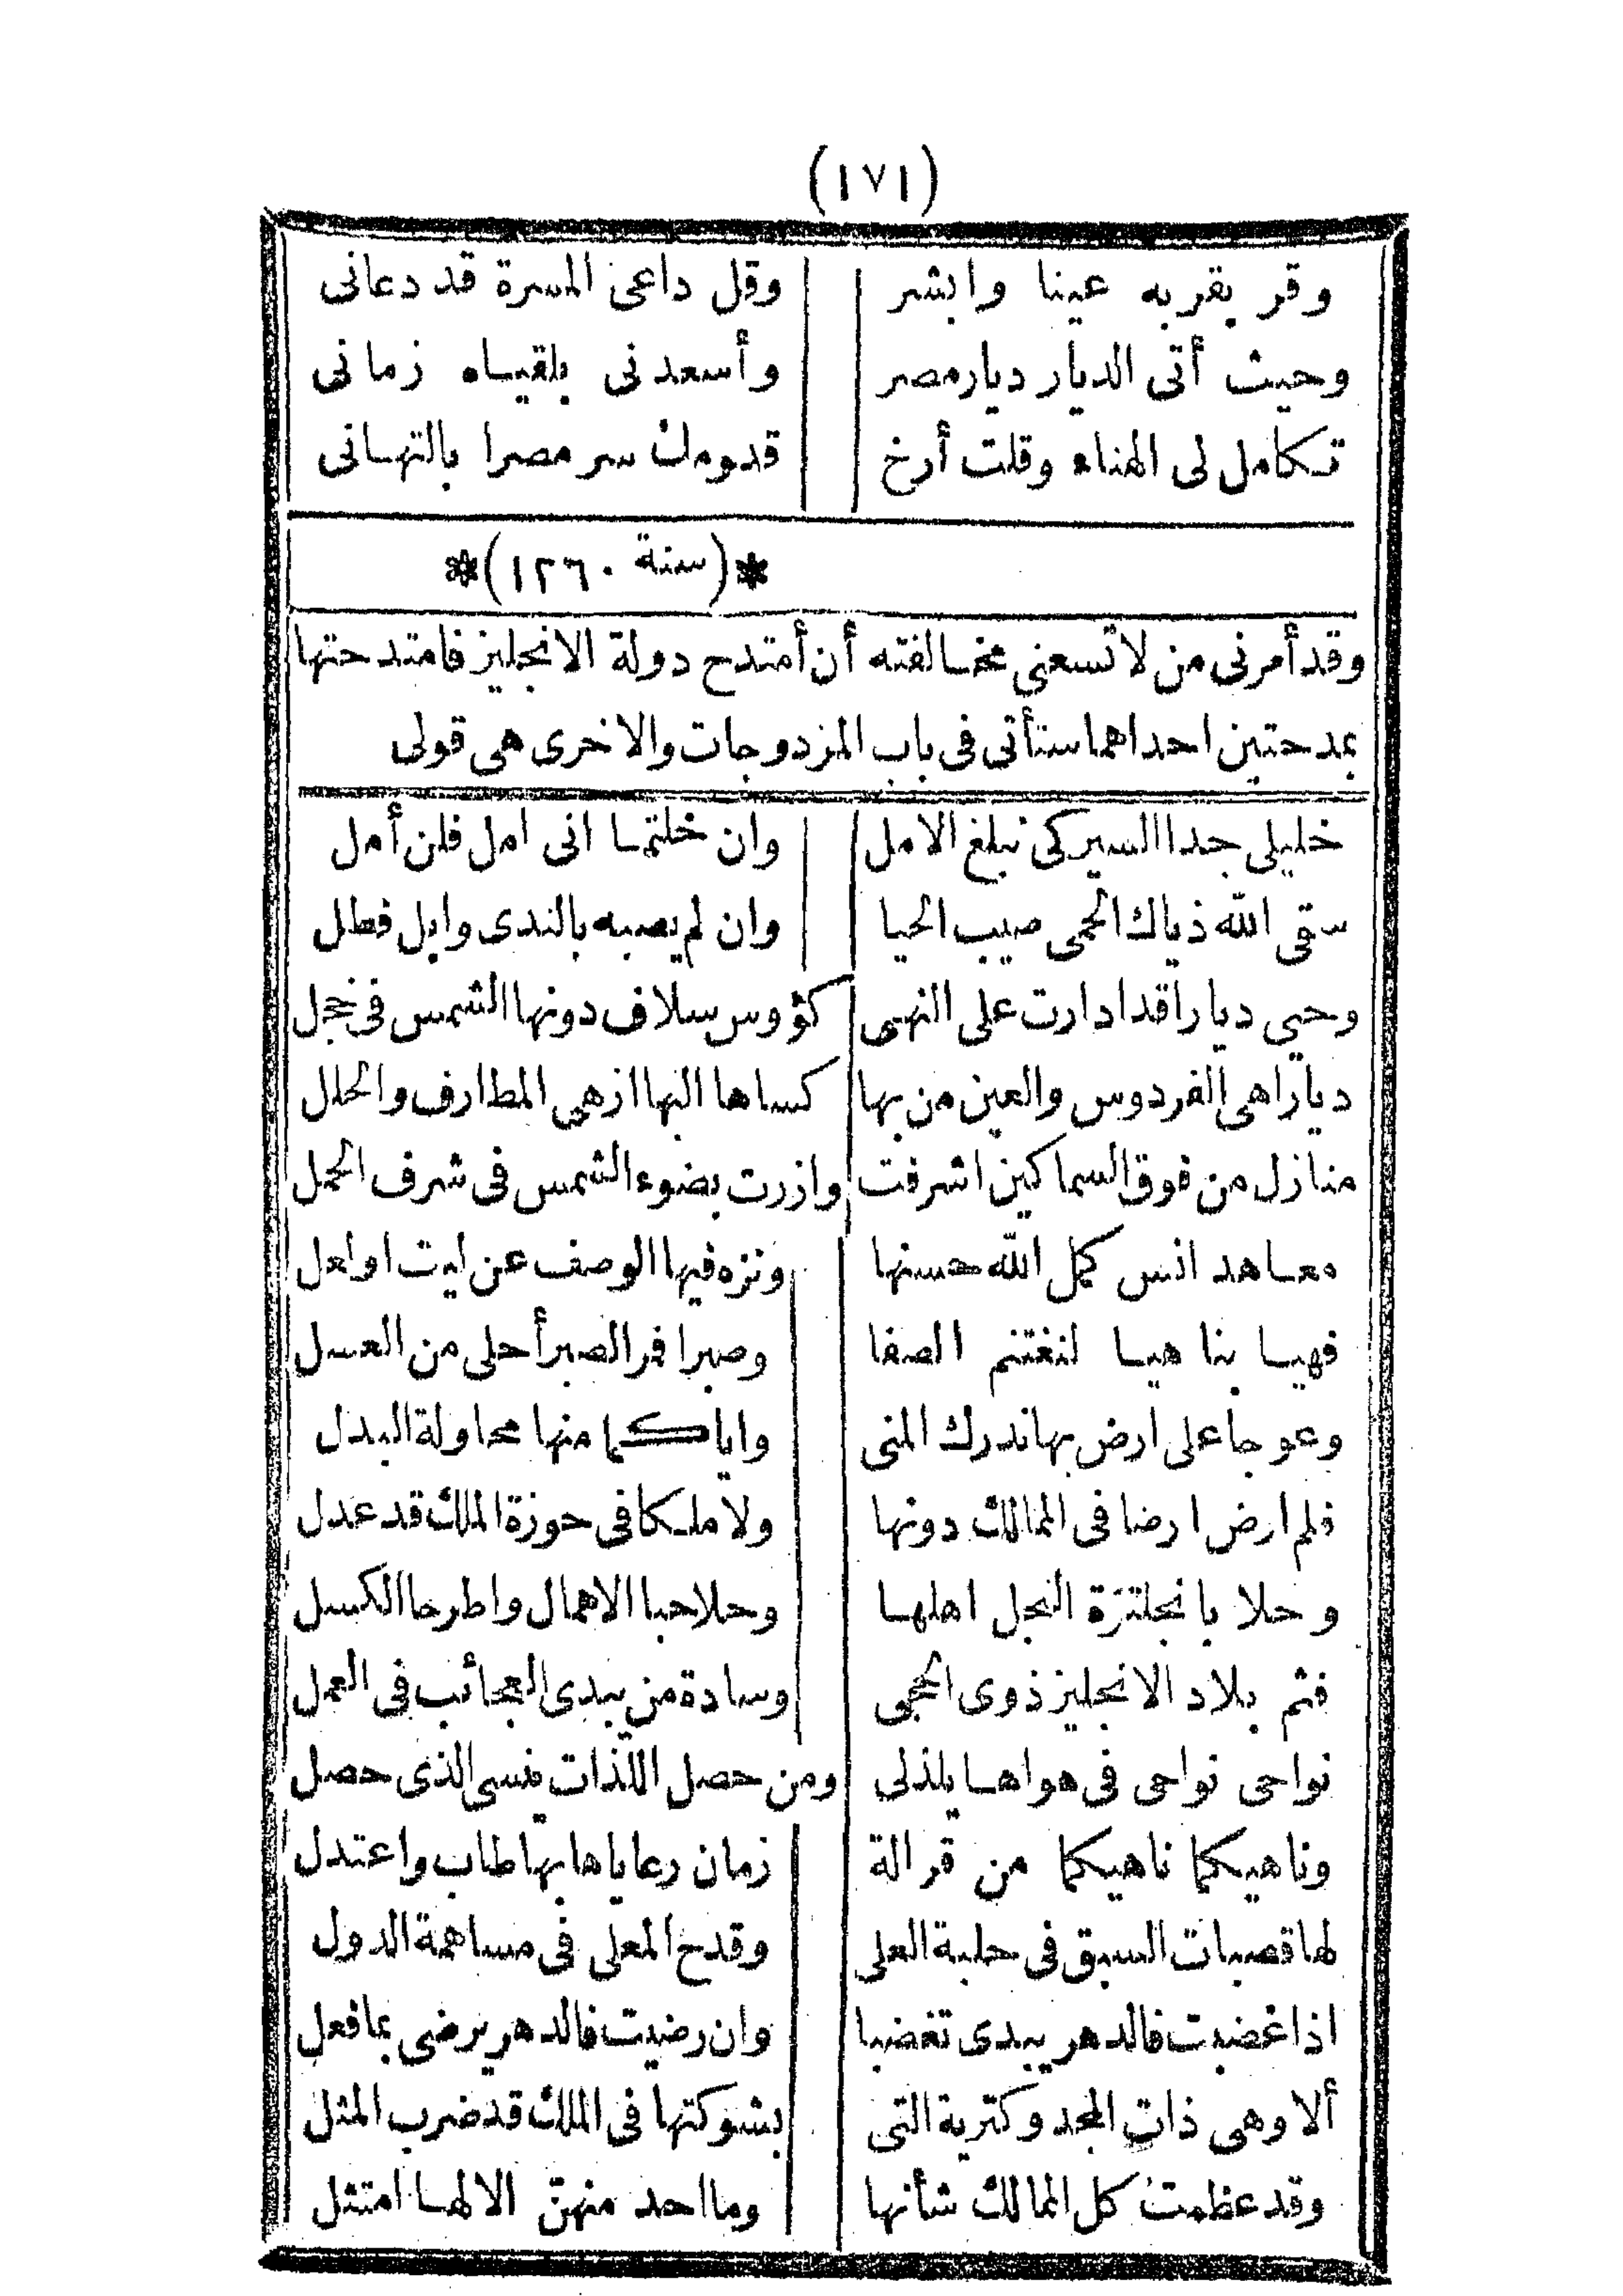 (١٧١)
وقر بقربه عينا وابشر وقل داعى المسرة قد دعانى
وحيث أتى الديار ديار مصر وأسعدنى بلقياه زمانى
تكامل لى الهناء وقلت أرخ قدومك سر مصرا بالتهانى
*(سنة ١٢٦٠)*
وقد أمرنى من لا تسعنى مخالفته أن أمتدح دولة الانجليز فامتدحتها
بمدحتين احداهما ستأتى فى باب المزدوجات والاخرى هى قولى
خليلى جدا السير كى نبلغ الامل وان خلتما انى امل فلن أمل
سقى الله ذياك الحمى صيب الحيا وان لم يصبه بالندى وابل فطل
وحيى ديارا قد ادارت على النهى كؤوس سلاف دونها الشمس فى خجل
ديارا هى الفردوس والعين من بها كساها البها ازهى المطارف والحلل
منازل من فوق السماكين اشرفت وازرت بضوء الشمس فى شرف الحمل
معاهد انس كمل الله حسنها ونزه فيها الوصف عن ليت او لعل
فهيا بنا هيا لنغتنم الصفا وصبرا فمر الصبر أحلى من العسل
وعوجا على ارض بها ندرك المنى واياكما منها محاولة البدل
فلم ارض ارضا فى الممالك دونها ولا ملكا فى حوزة الملك قد عدل
وحلا بانجلتزة النجل اهلها وحلا حبا الاهمال واطرحا الكسل
فثم بلاد الانجليز ذوى الحجى وسادة من يبدى العجائب فى العمل
نواحى نواحى فى هواها يلذلى ومن حصل اللذات ينسى الذى حصل
وناهيكما ناهيكما من قرالة زمان رعاياها بها طاب واعتدل
لها قصبات السبق فى حلبة العلى وقدح المعلى فى مساهمة الدول
اذا غضبت فالدهر يبدى تغضبا وان رضيت فالدهر يرضى بما فعل
ألا وهى ذات المجد وكترية التى بشوكتها فى الملك قد ضرب المثل
وقد عظمت كل الممالك شأنها وما احد منهن الا لها امتثل